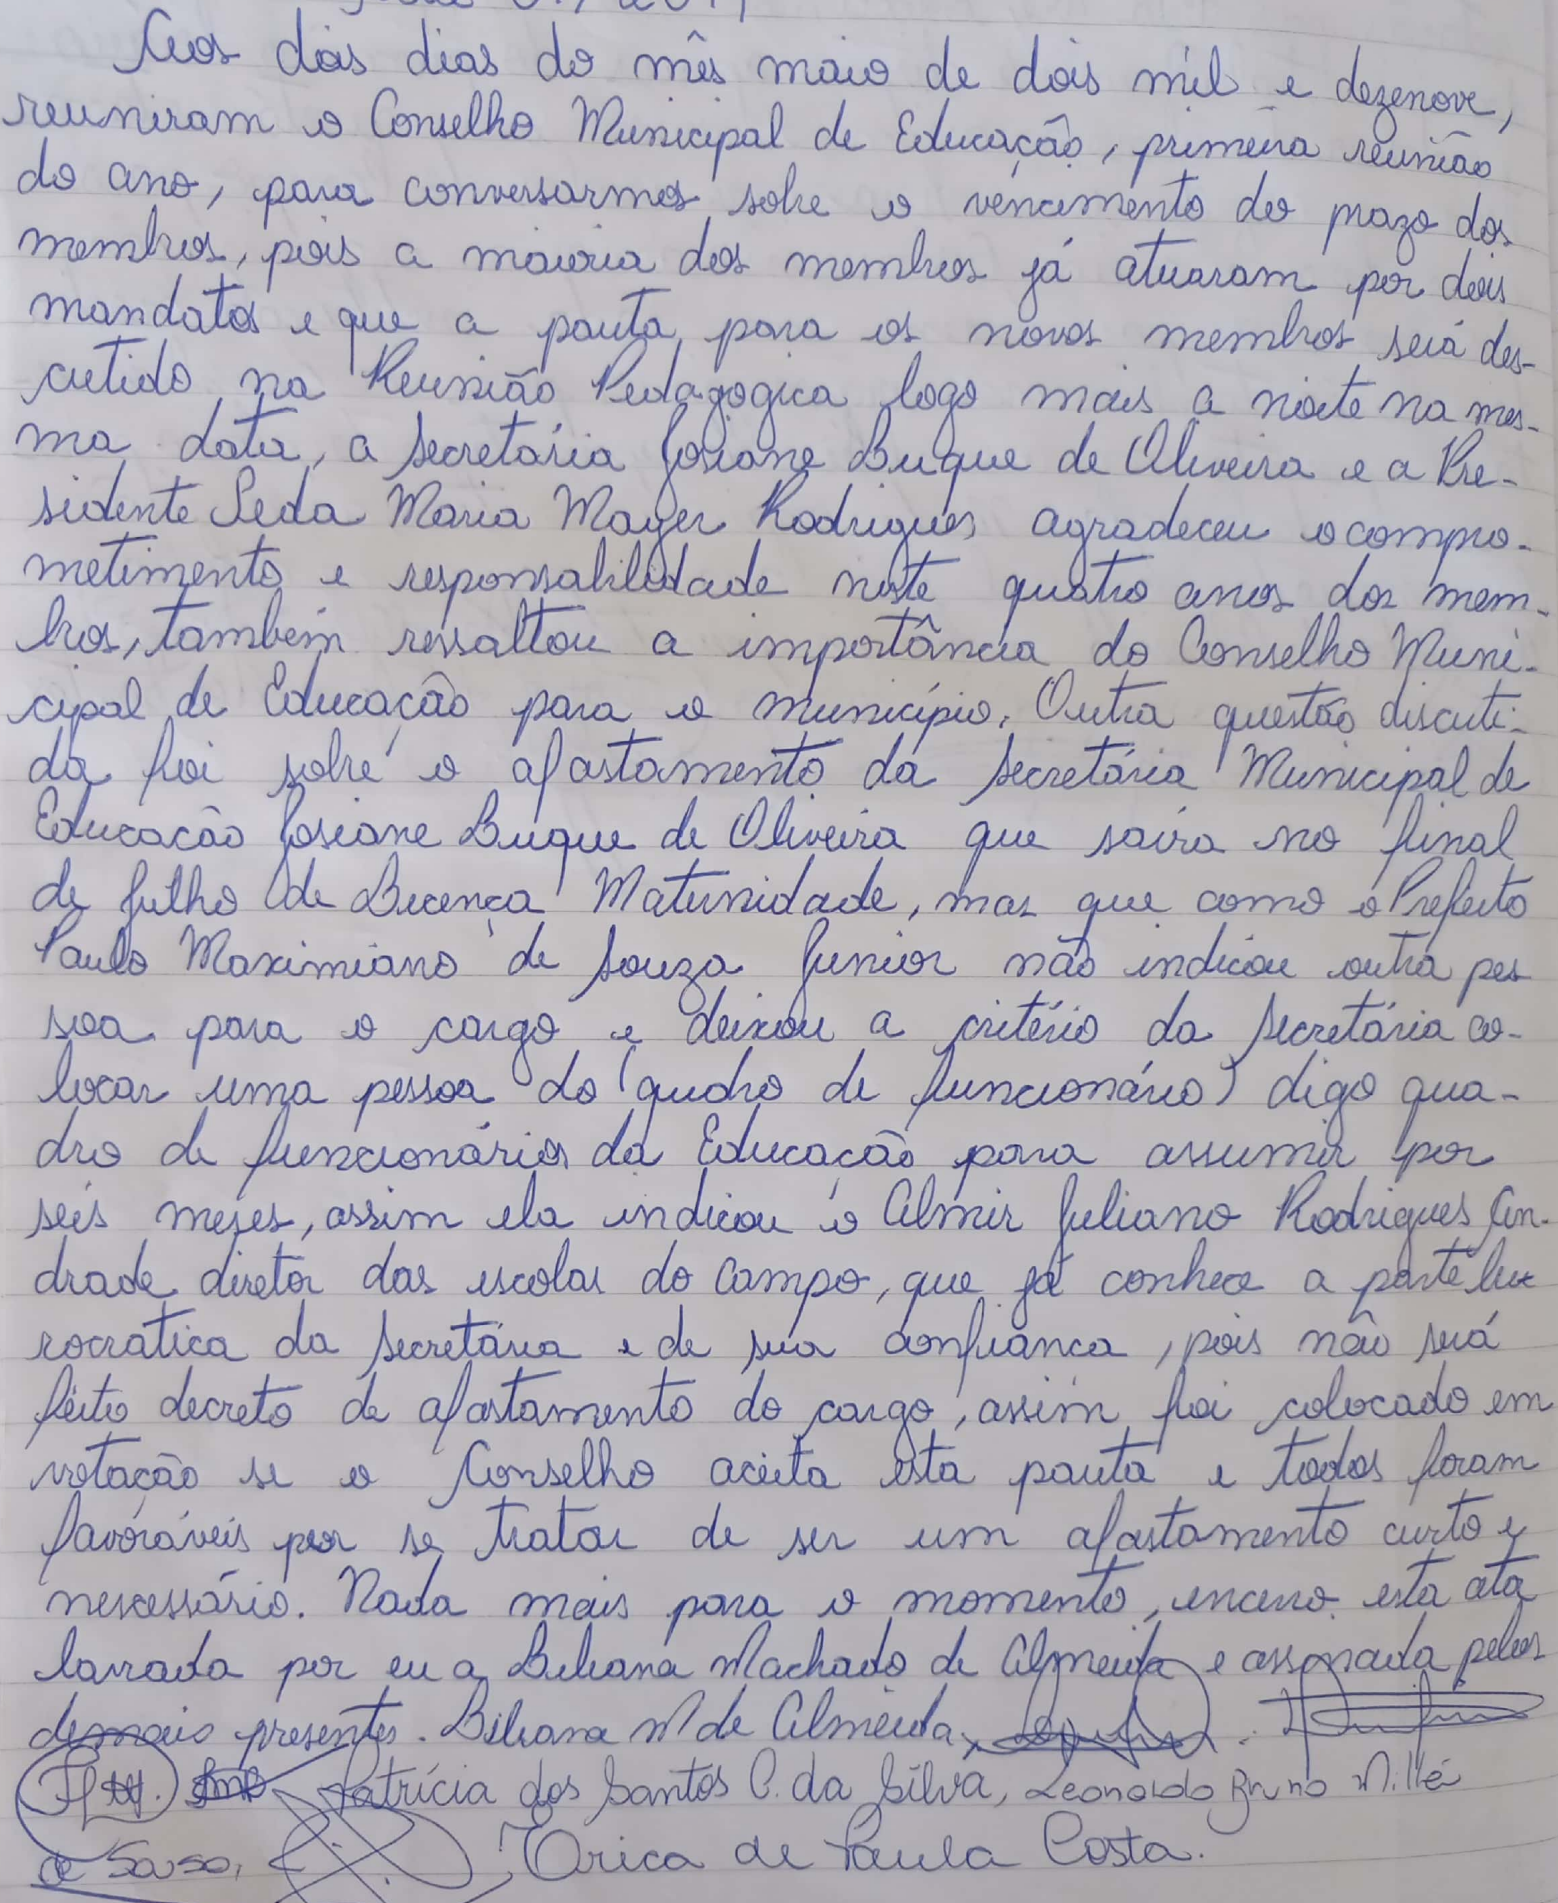 Aos dois dias do mês maio de dois mil e dezenove,
reuniram o Conselho Municipal de Educação, primeira reunião
do ano, para conversarmos sobre o vencimento do prazo dos
membros, pois a maioria dos membros já atuaram por dois
mandatos e que a pauta para os novos membros será des-
cutido na Reunião Pedagogica logo mais a noite na mes-
ma data, a secretária Josiane Buque de Oliveira e a Pre-
sidente Leda Maria Mayer Rodrigues agradeceu o compro-
metimento e responsabilidade neste quatro anos dos mem-
bros, também ressaltou a importância do Conselho Muni-
cipal de Educação para o município. Outra questão discuti-
da foi sobre o afastamento da secretária Municipal de
Educacão Josiane Buque de Oliveira que saira no final
de julho de Licença Maternidade, mas que como o Prefeito
Paulo Maximiano de Souza Junior não indicou outra pes
soa para o cargo e deixou a critério da secretária co-
locar uma pessoa do (qudro de funcionário) digo qua-
dro de funcionários da Educacão para assumir por
seis meses, assim ela indicou o Almir Juliano Rodrigues An-
drade diretor das escolas do campo, que já conhece a parte bu
rocratica da secretária e de sua confianca, pois não será
feito decreto de afastamento do cargo, assim foi colocado em
votação se o Conselho aceita esta pauta e todos foram
favoráveis por se tratar de ser um afastamento curto e
nescessário. Nada mais para o momento, encerro esta ata
lavrada por eu a Biliana Machado de Almeida e assinada pelos
demais presentes. Biliana M de Almeida,
Patrícia dos Santos C. da Silva, Leonardo Bruno Millé
de Souso, Erica de Paula Costa.